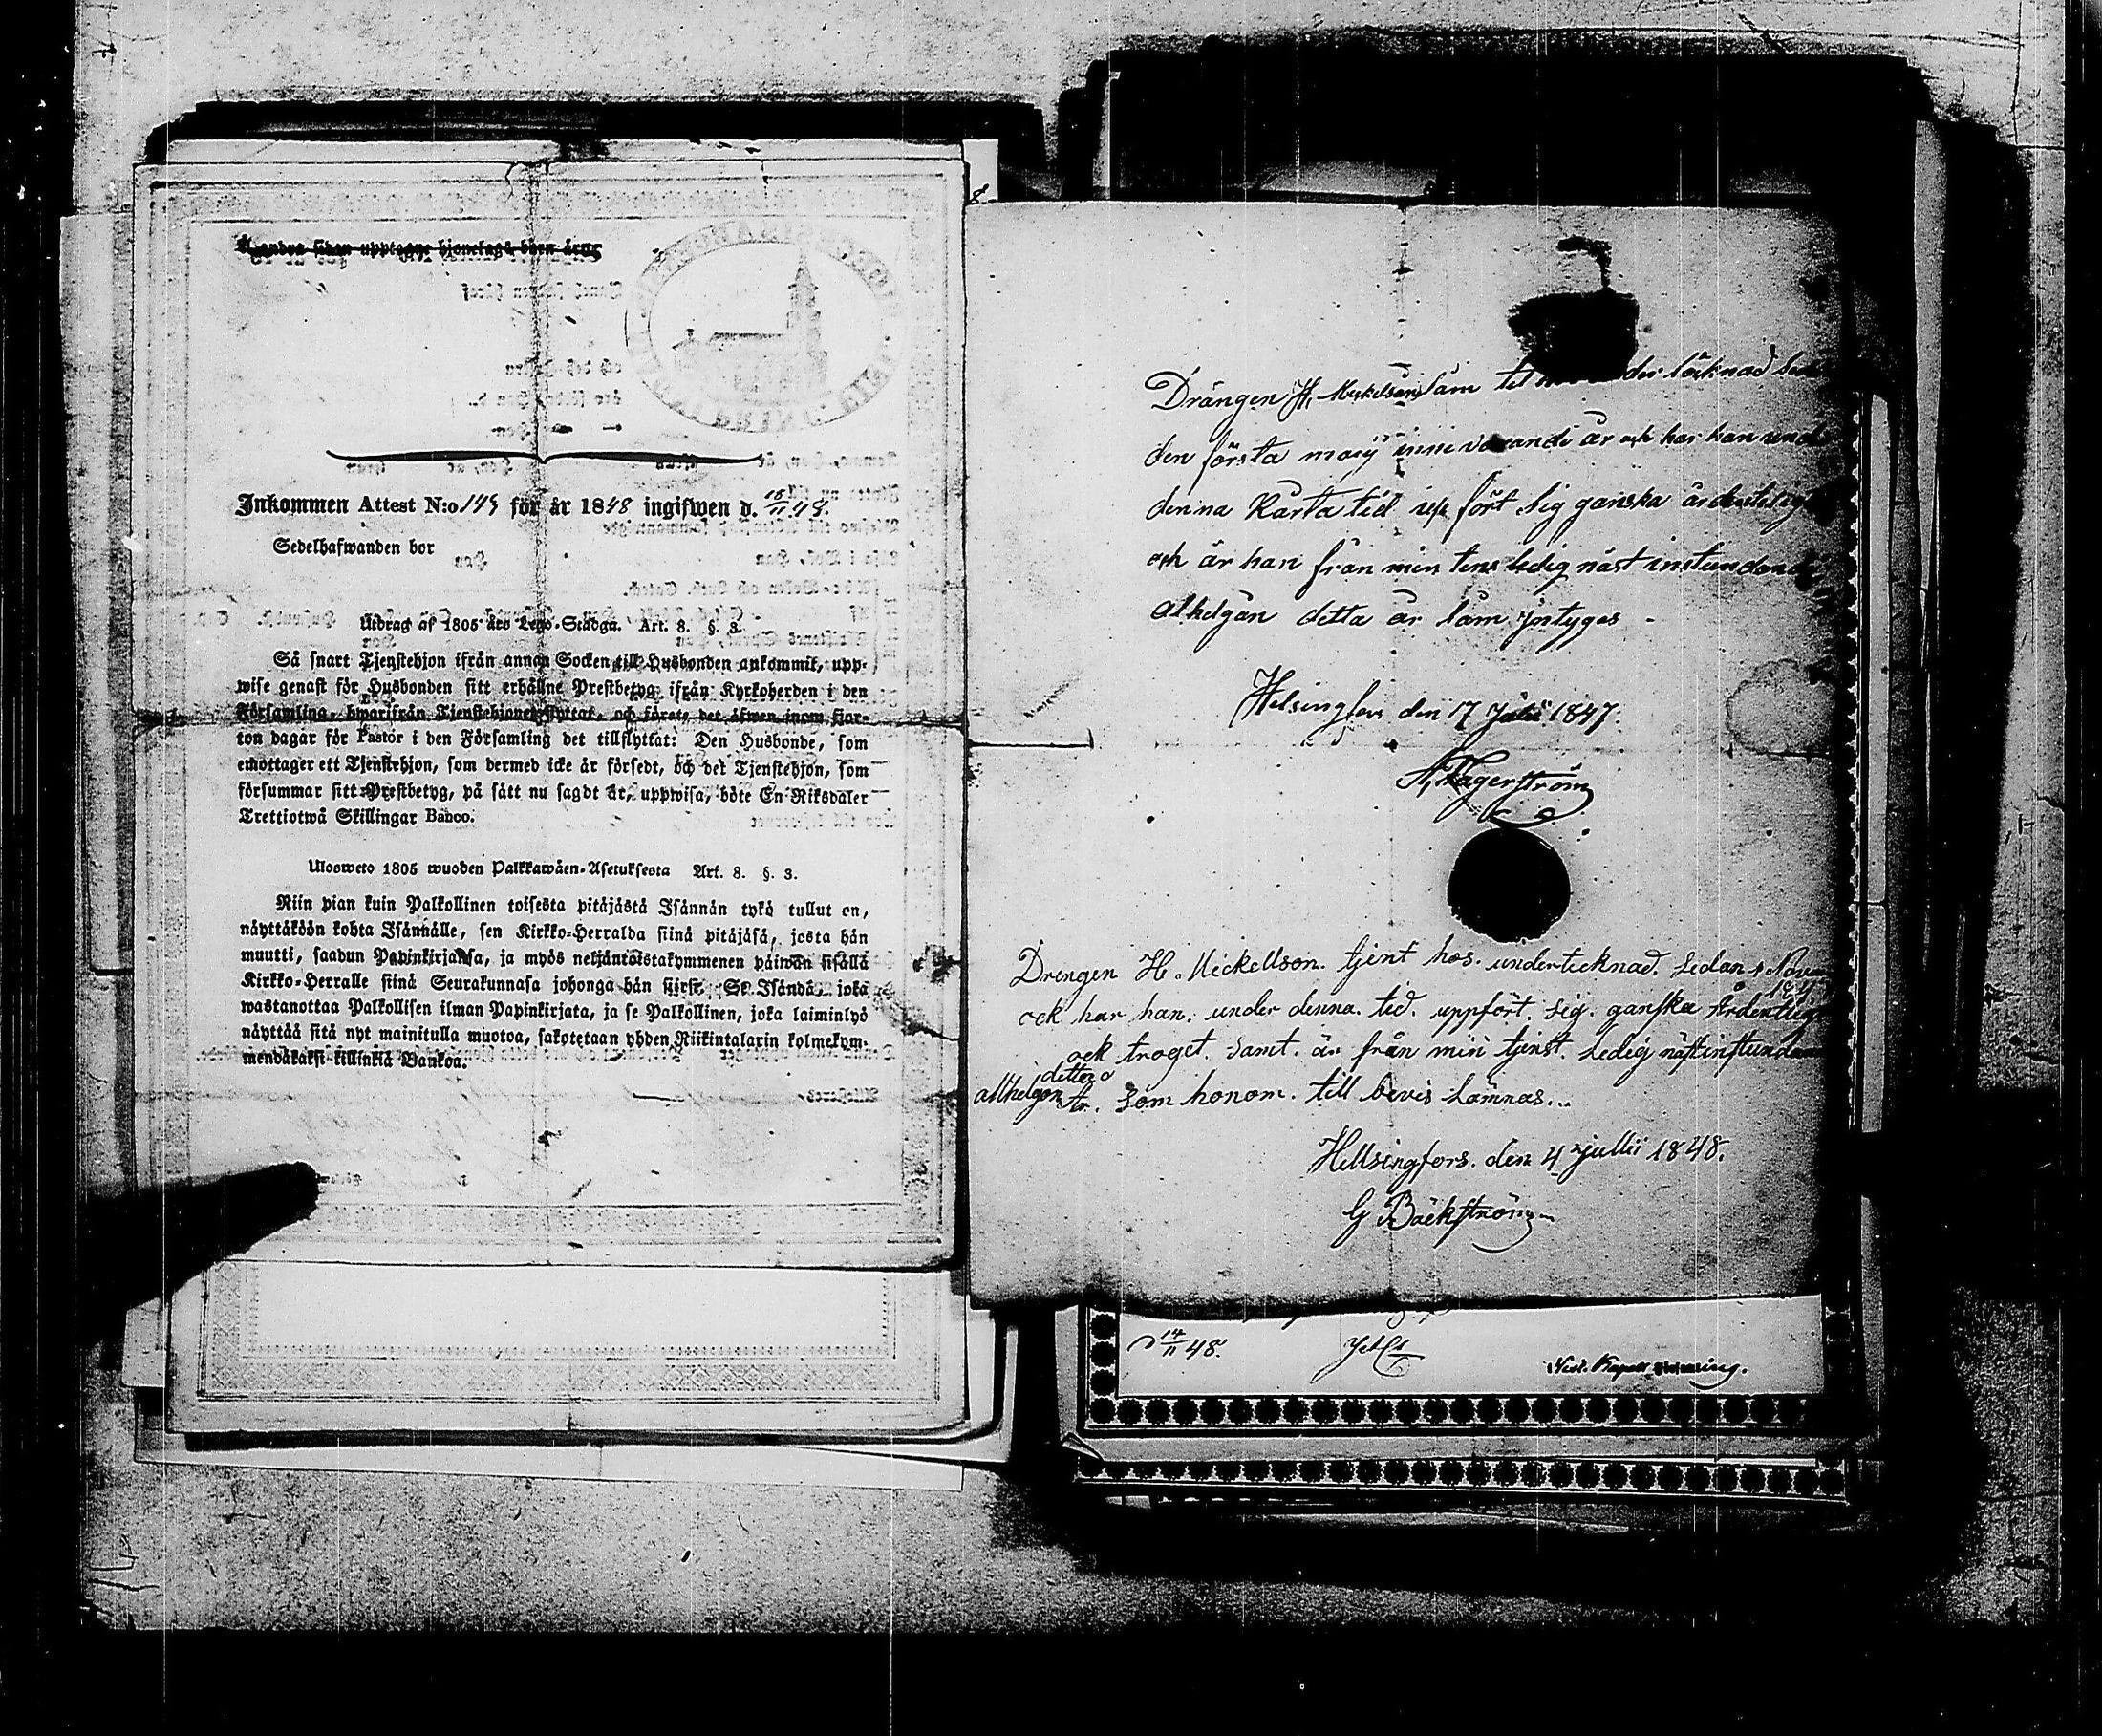 Å andra sidan upptagne hjonelags barn äro:
Inkommen Attest N:o 145 för år 1848 ingifwen d. 15/11 48.
Sedelhafwanden bor
Utdrag af 1805 års Lego-Stadga. Art. 8. §. 3.
Så snart Tjenstehjon ifrån annan Socken till Husbonden ankommit, upp-
wise genast för Husbonden sitt erhållne Prestbetyg ifrån Kyrkoherden i den
Församling, hwarifrån Tjenstehjonet flyttat, och förete det äfwen inom fjor-
ton dagar för Pastor i den Församling det tillflyttat: Den Husbonde, som
emottager ett Tjenstehjon, som dermed icke är försedt, och det Tjenstehjon, som
försummar sitt Prestbetyg, på sätt nu sagdt är, uppwisa, böte En Riksdaler
Trettiotwå Skillingar Banco.
Ulosweto 1805 wuoden Palkkawäen-Asetuksesta Art. 8. §. 3.
Niin pian kuin Palkollinen toisesta pitäjästä Isännän tykö tullut on,
näyttäköön kohta Isännälle, sen Kirkko-Herralda siinä pitäjäsä, josta hän
muutti, saadun Papinkirjansa, ja myös neljäntoistakymmenen päiwän sisällä
Kirkko-Herralle siinä Seurakunnasa johonga hän siirsi. Se Isändä, joka
wastanottaa Palkollisen ilman Papinkirjata, ja se Palkollinen, joka laiminlyö
näyttää sitä nyt mainitulla muotoa, sakotetaan yhden Riikintalarin kolmekym-
mendäkaksi killinkiä Bankoa.
Drängen H, Mickelson som til der täcknad
den första maij inne varande år och har han und
denna Karta tid up fört sig ganska ärdentligt
och är han från min tens ledig näst instundande
alhelgån detta år som intyges
Helsingfors den 17 Julii 1847.
A, Wagerström
Drengen H. Mickellson. tjent hos. undertecknad. sedan 1 Novem
ock har han. under denna. tid. uppfört. sig. ganska Årdentligt
ock troget. Samt. är från min tjenst. Ledig näst instundan
althelgon detta År. Som honom. till bevis Lämnas...
Hellsingfors. den 4 jullii 1848.
G Bäckström
d 14/11 48.